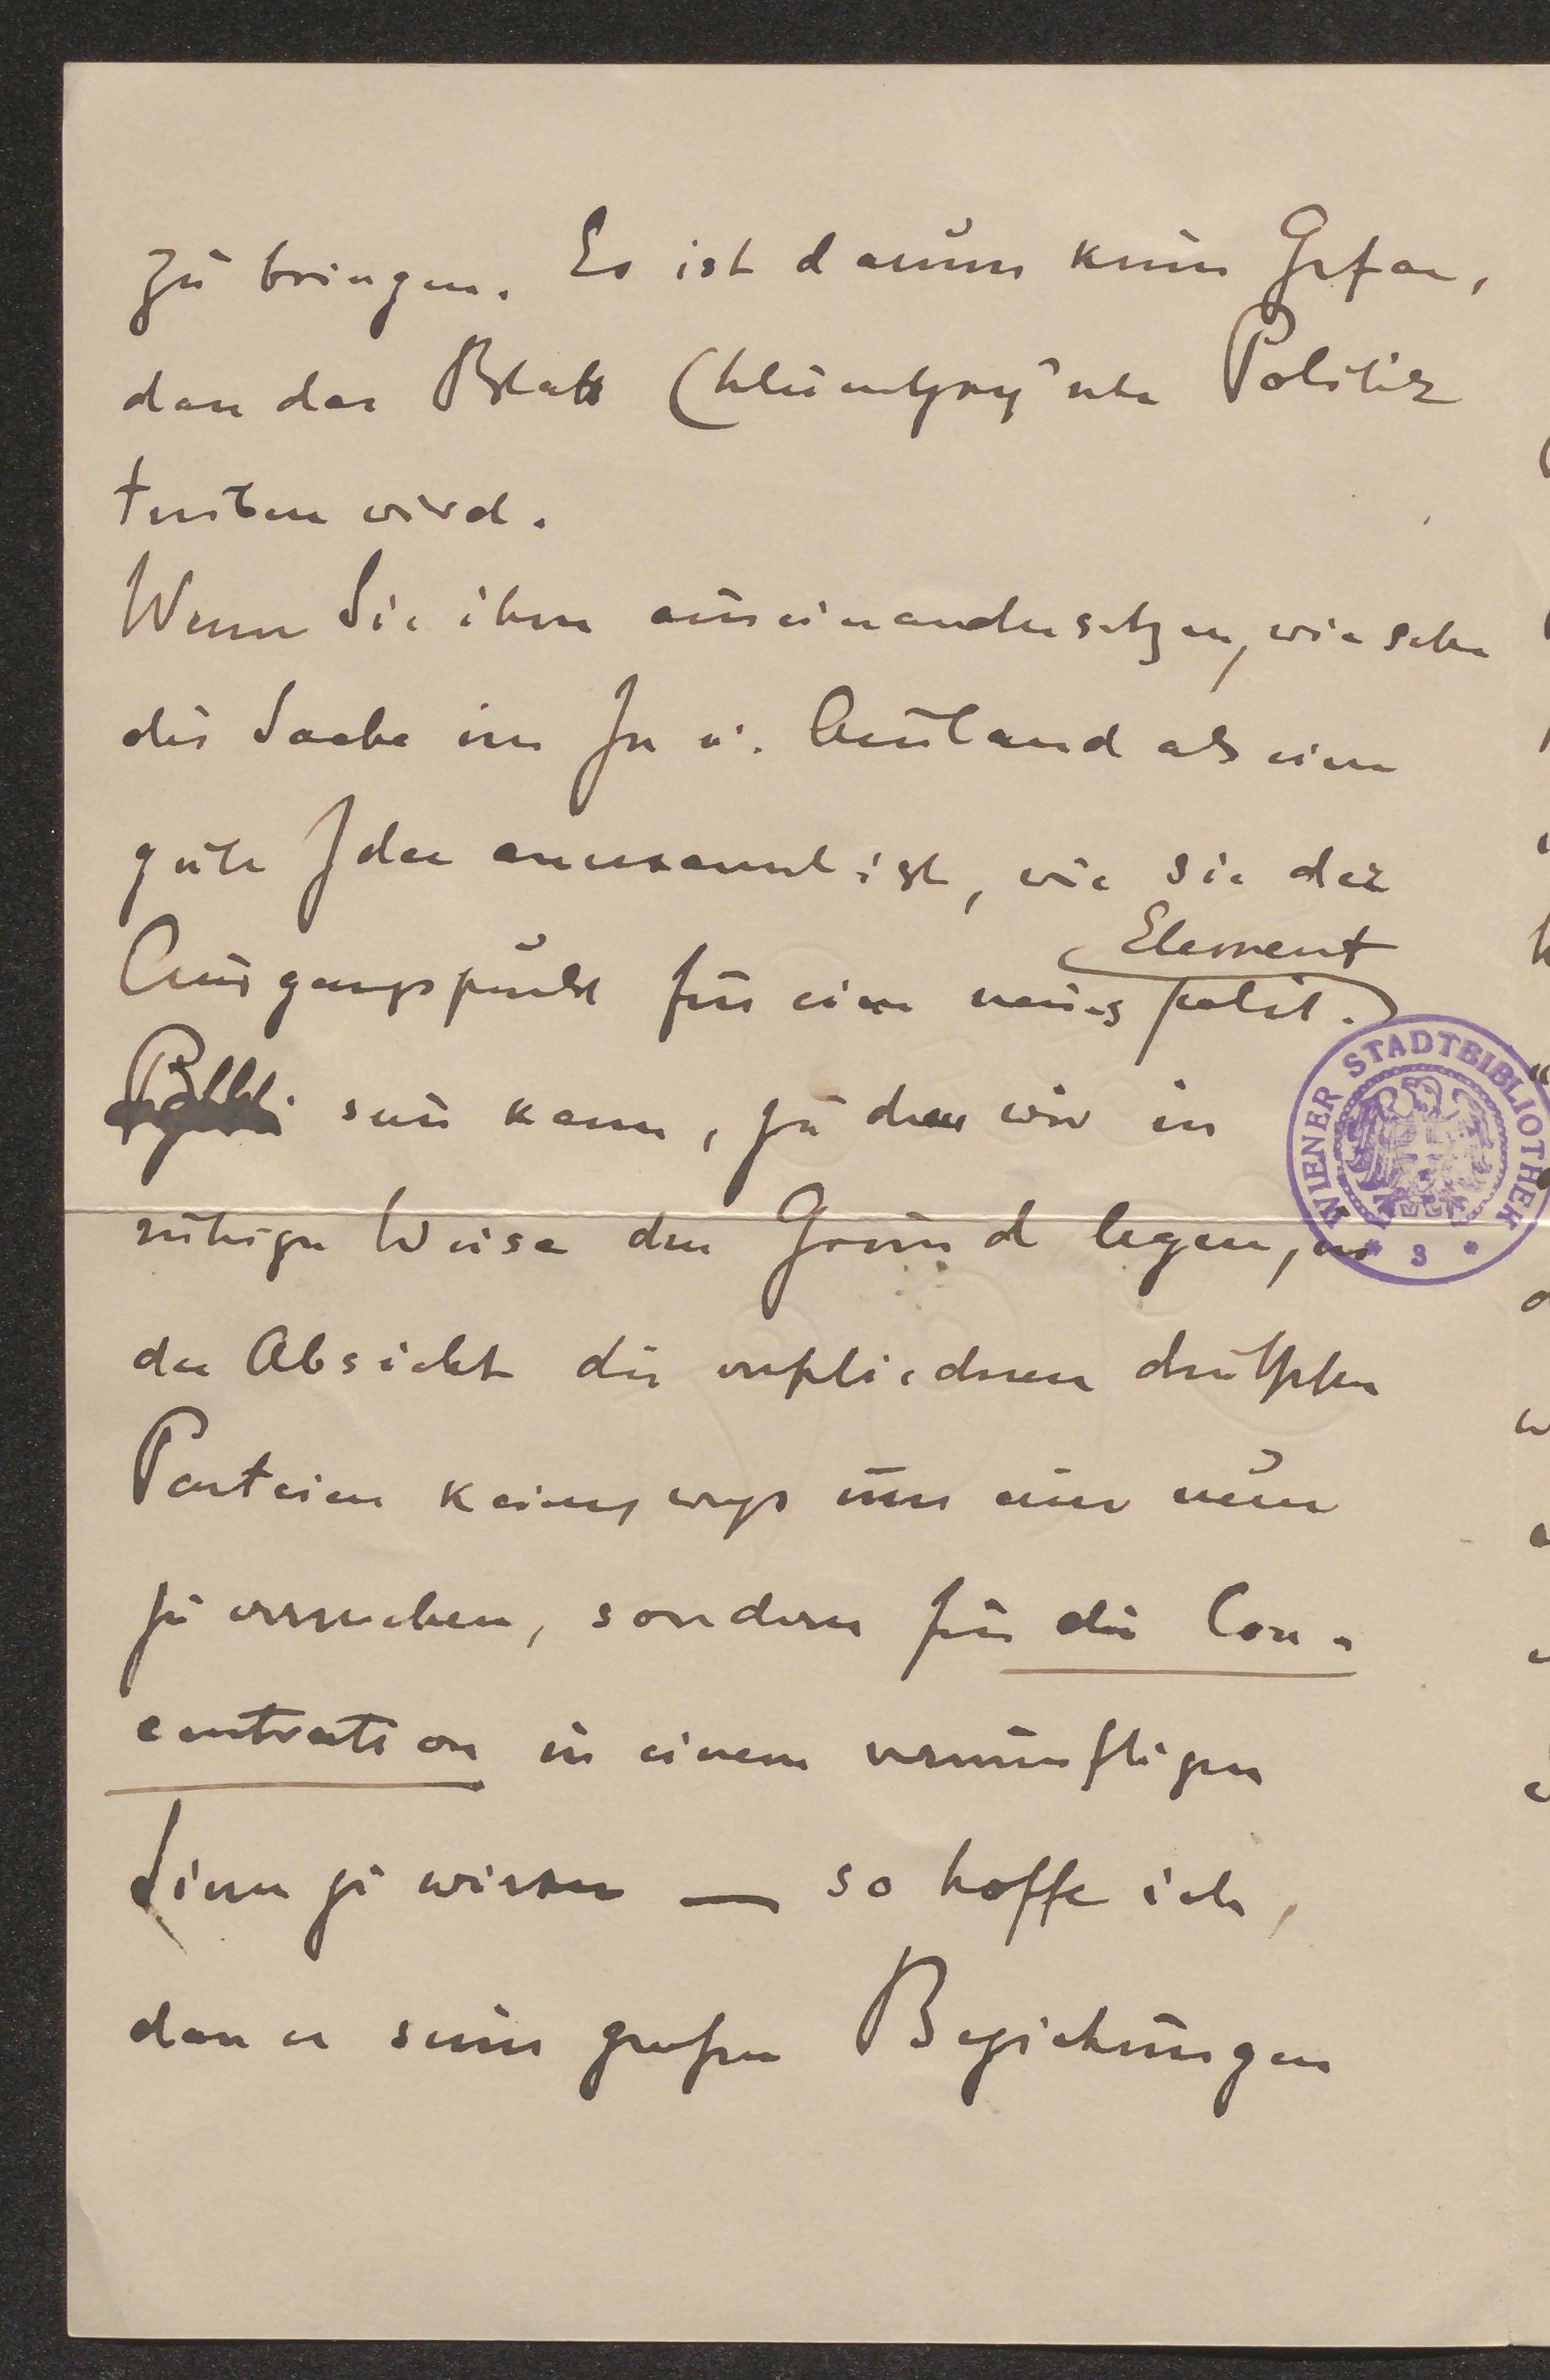 zu bringen. Es ist darum keine Gefar,
dass das Blatt Chlumetzky'sche Politik
treiben wird.
Wenn Sie ihm auseinandersetzen, wie sehr
die Sache im In u. Ausland als eine
gute Idee anerkannt ist, wie sie der
Ausgangspunkt für ein neues polit.
Element
sein kann, zu dem wir in
ruhiger Weise den Grund legen, in
der Absicht die verschiedenen deutschen
Parteien keineswegs um eine neue
zu vermehren, sondern für die Con-
centration in einem vernünftigen
Sinn zu wirken — so hoffe ich,
dass er seine großen Beziehungen
WIENER STADTBIBLIOTHEK